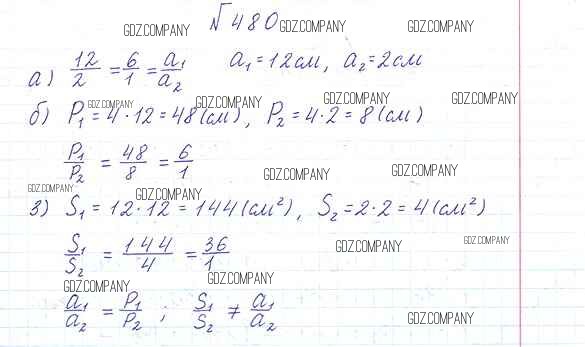 №480 GDZ.COMPANY GDZ.COMPANY GDZ.COMPANY
а) 12/2 = 6/1 = a₁/a₂ a₁ = 12см, a₂ = 2см
GDZ.COMPANY GDZ.COMPANY GDZ.COMPANY GDZ.COMPANY
б) P₁ = 4·12 = 48(см), P₂ = 4·2 = 8(см)
P₁/P₂ = 48/8 = 6/1 GDZ.COMPANY GDZ.COMPANY
GDZ.COMPANY GDZ.COMPANY
з) S₁ = 12·12 = 144(см²), S₂ = 2·2 = 4(см²)
S₁/S₂ = 144/4 = 36/1 GDZ.COMPANY GDZ.COMPANY
GDZ.COMPANY GDZ.COMPANY
a₁/a₂ = P₁/P₂ ; S₁/S₂ ≠ a₁/a₂ GDZ.COMPANY